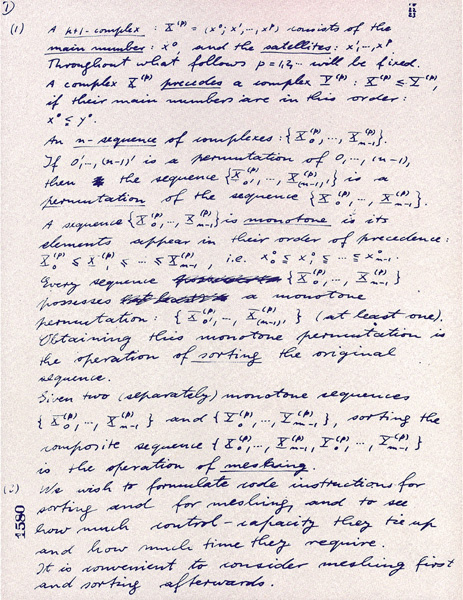 ①
(1) A k+1-complex : X^(p) = (x⁰; x¹,..., xᵖ) consists of the
main number: x⁰, and the satellites: x¹,...xᵖ.
Throughout what follows p=1,2,... will be fixed.
A complex X^(p) precedes a complex Y^(p): X^(p) ≤ Y^(p),
if their main numbers are in this order:
x⁰ ≤ y⁰.
An n-sequence of complexes: {X₀^(p),..., Xₙ₋₁^(p)}.
If 0',...,(n-1)' is a permutation of 0,...,(n-1),
then the sequence {X₀'^(p),..., X₍ₙ₋₁₎'^(p)} is a
permutation of the sequence {X₀^(p),..., Xₙ₋₁^(p)}.
A sequence {X₀^(p),..., Xₙ₋₁^(p)} is monotone is its
elements appear in their order of precedence:
X₀^(p) ≤ X₁^(p) ≤ ... ≤ Xₙ₋₁^(p), i.e. x₀⁰ ≤ x₁⁰ ≤ ... ≤ xₙ₋₁⁰.
Every sequence {X₀^(p),..., Xₙ₋₁^(p)}
possesses a monotone
permutation: {X₀'^(p),..., X₍ₙ₋₁₎'^(p)} (at least one).
Obtaining this monotone permutation is
the operation of sorting the original
sequence.
Given two (separately) monotone sequences
{X₀^(p),..., Xₙ₋₁^(p)} and {Y₀^(p),..., Yₘ₋₁^(p)}, sorting the
composite sequence {X₀^(p),..., Xₙ₋₁^(p), Y₀^(p),..., Yₘ₋₁^(p)}
is the operation of meshing.
(2) We wish to formulate code instructions for
sorting and for meshing, and to see
how much control-capacity they tie up
and how much time they require.
It is convenient to consider meshing first
and sorting afterwards.
1580